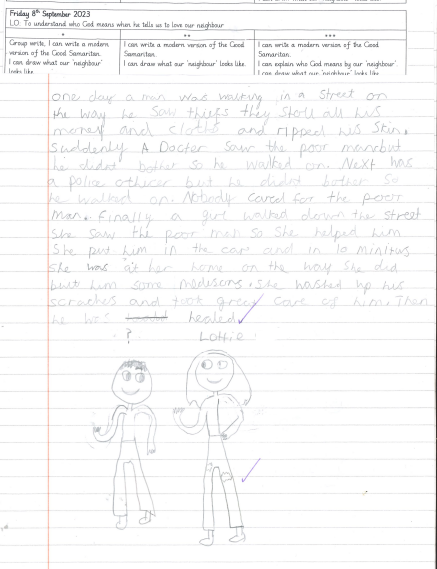 Friday 8th September 2023
L.O. To understand who God means when he tells us to love our neighbour
* ** ***
Group write, I can write a modern version of the Good Samaritan.
I can draw what our 'neighbour' looks like.
I can write a modern version of the Good Samaritan.
I can draw what our 'neighbour' looks like.
I can write a modern version of the Good Samaritan.
I can explain who God means by our 'neighbour'.
I can draw what our 'neighbour' looks like.
one day a man was walking in a street on
the way he saw thiefs they stoll all his
money and cloths and ripped his skin.
Suddenly A Docter saw the poor man but
he didnt bother so he walked on. Next was
a police otherer but he didnt bother so
he walked on. Nobody cared for the poor
man. Finally a girl walked down the street
she saw the poor man so she helped him
She put him in the car and in 10 minitus
she was at her home on the way she did
but him some madesons. she washed up his
scraches and took great care of him. Then
he was healed.
?
Lottie